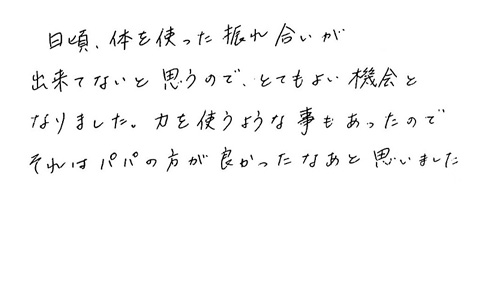 日頃、体を使った振れ合いが
出来てないと思うので、とてもよい機会と
なりました。力を使うような事もあったので
それはパパの方が良かったなあと思いました